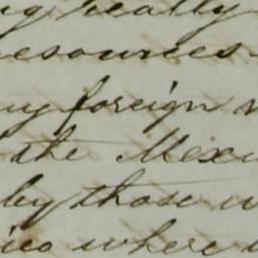 really
resources
foreign
the Mexi
by those w
ico where